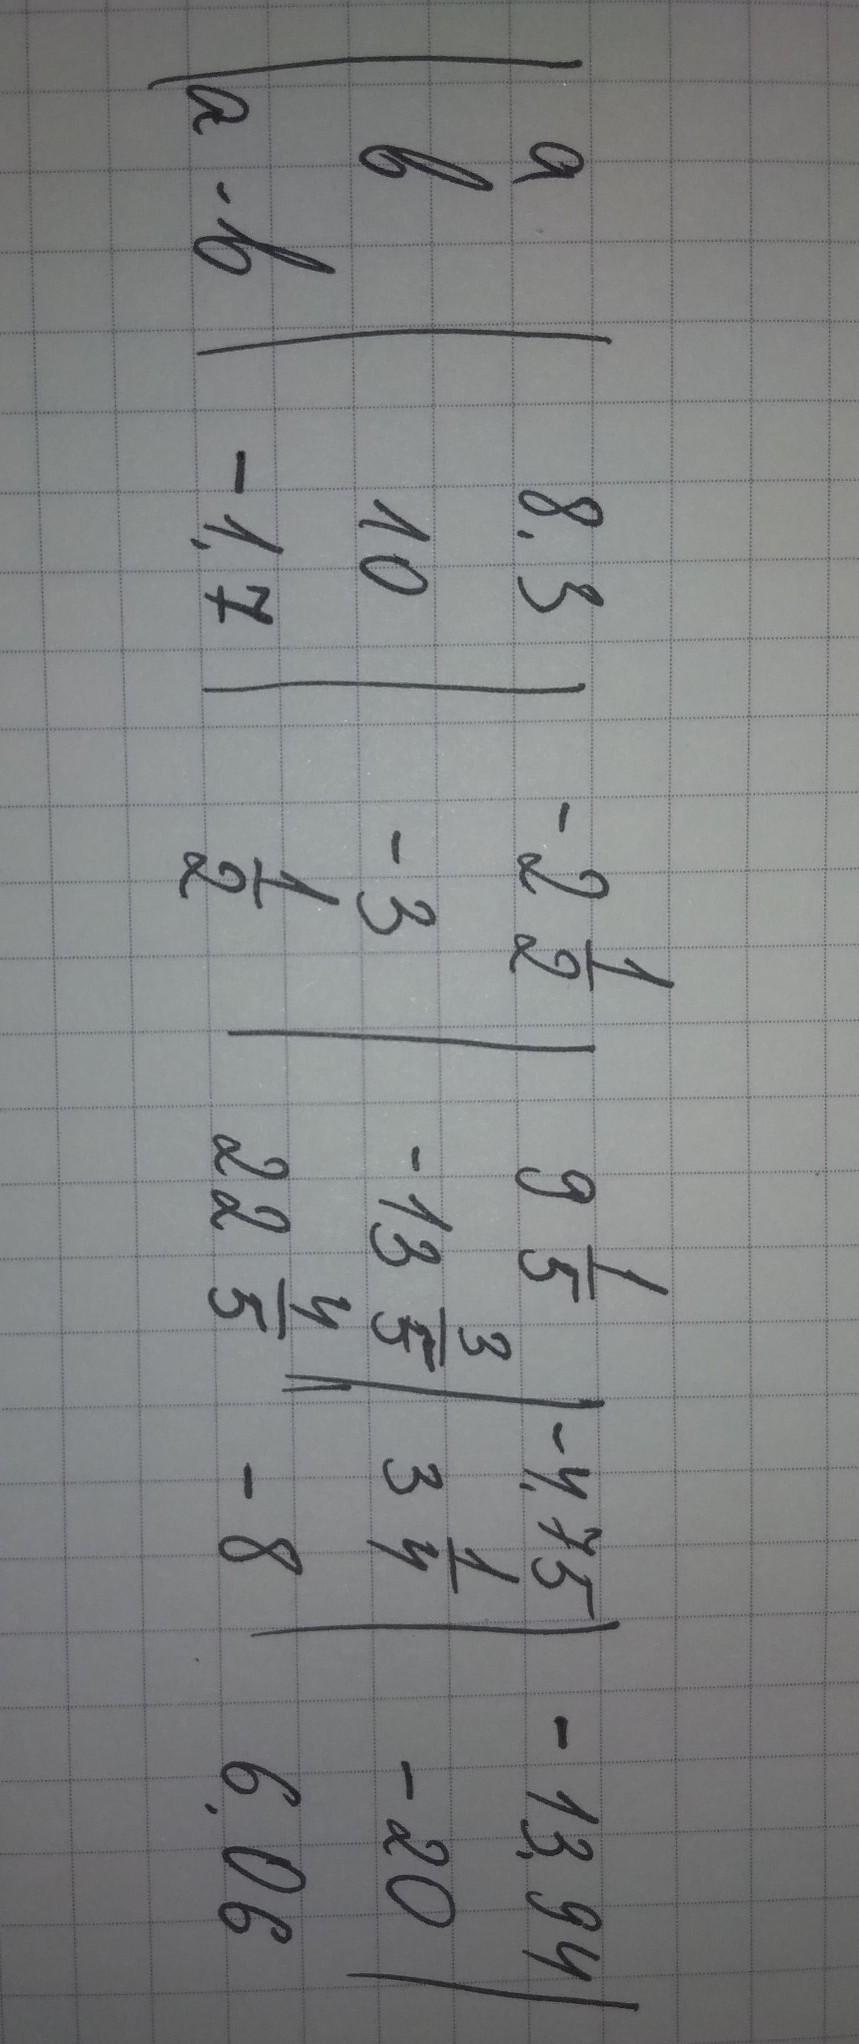 a | 8,3 | -2 1/2 | 9 1/5 | -4,75 | -13,94
b | 10 | -3 | -13 3/5 | 3 1/4 | -20
a - b | -1,7 | 1/2 | 22 4/5 | -8 | 6,06